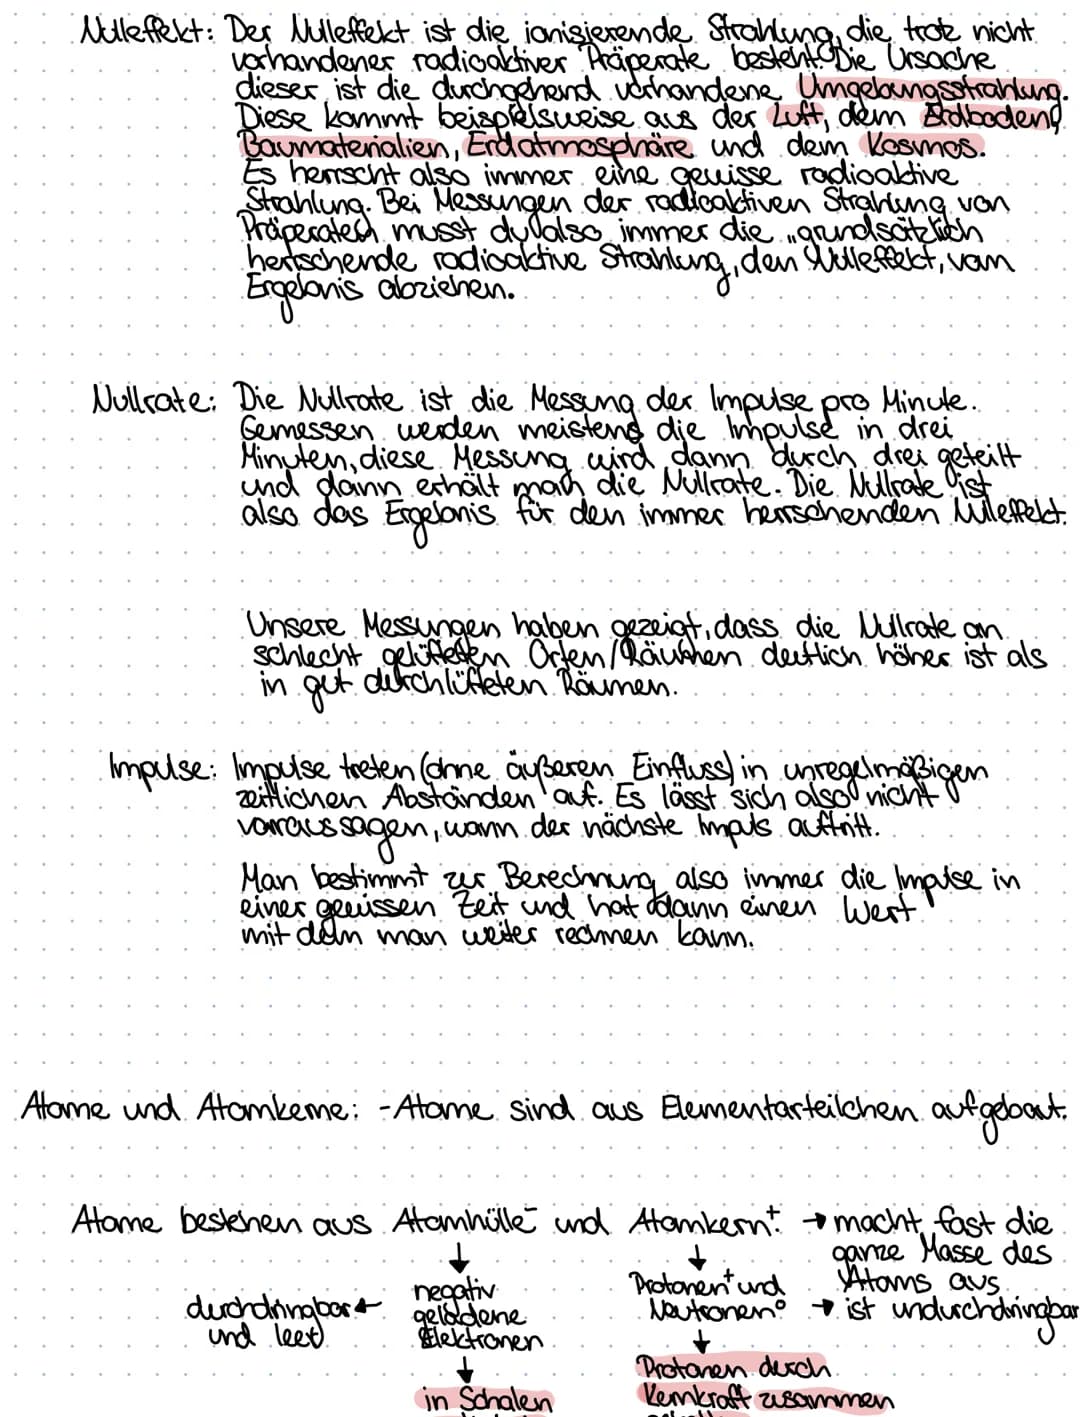 Nulleffekt: Der Nulleffekt ist die ionisierende Strahlung, die trotz nicht
vorhandener radioaktiver Präperate besteht. Die Ursache
dieser ist die durchgehend vorhandene Umgebungsstrahlung.
Diese kommt beispielsweise aus der Luft, dem Erdboden,
Baumaterialien, Erdatmosphäre und dem Kosmos.
Es herrscht also immer eine gewisse radioaktive
Strahlung. Bei Messungen der radioaktiven Strahlung von
Präperaten musst du also immer die „grundsätzlich
herrschende radioaktive Strahlung, den Nulleffekt, vom
Ergebnis abziehen.
Nullrate: Die Nullrate ist die Messung der Impulse pro Minute.
Gemessen werden meistens die Impulse in drei
Minuten, diese Messung wird dann durch drei geteilt
und dann erhält man die Nullrate. Die Nullrate ist
also das Ergebnis für den immer herrschenden Nulleffekt.
Unsere Messungen haben gezeigt, dass die Nullrate an
schlecht gelüfteten Orten/Räumen deutlich höher ist als
in gut durchlüfteten Räumen.
Impulse: Impulse treten (ohne äußeren Einfluss) in unregelmäßigen
zeitlichen Abständen auf. Es lässt sich also nicht
vorraussagen, wann der nächste Impuls auftritt.
Man bestimmt zur Berechnung also immer die Impulse in
einer gewissen Zeit und hat dann einen Wert
mit dem man weiter rechnen kann.
Atome und Atomkerne: - Atome sind aus Elementarteilchen aufgebaut.
Atome bestehen aus Atomhülle⁻ und Atomkern⁺: → macht fast die
ganze Masse des
Atoms aus
→ ist undurchdringbar
↓
negativ
geladene
Elektronen
durchdringbar ←
und leer
↓
in Schalen
↓
Protonen⁺ und
Neutronen⁰
↓
Protonen durch
Kernkraft zusammen